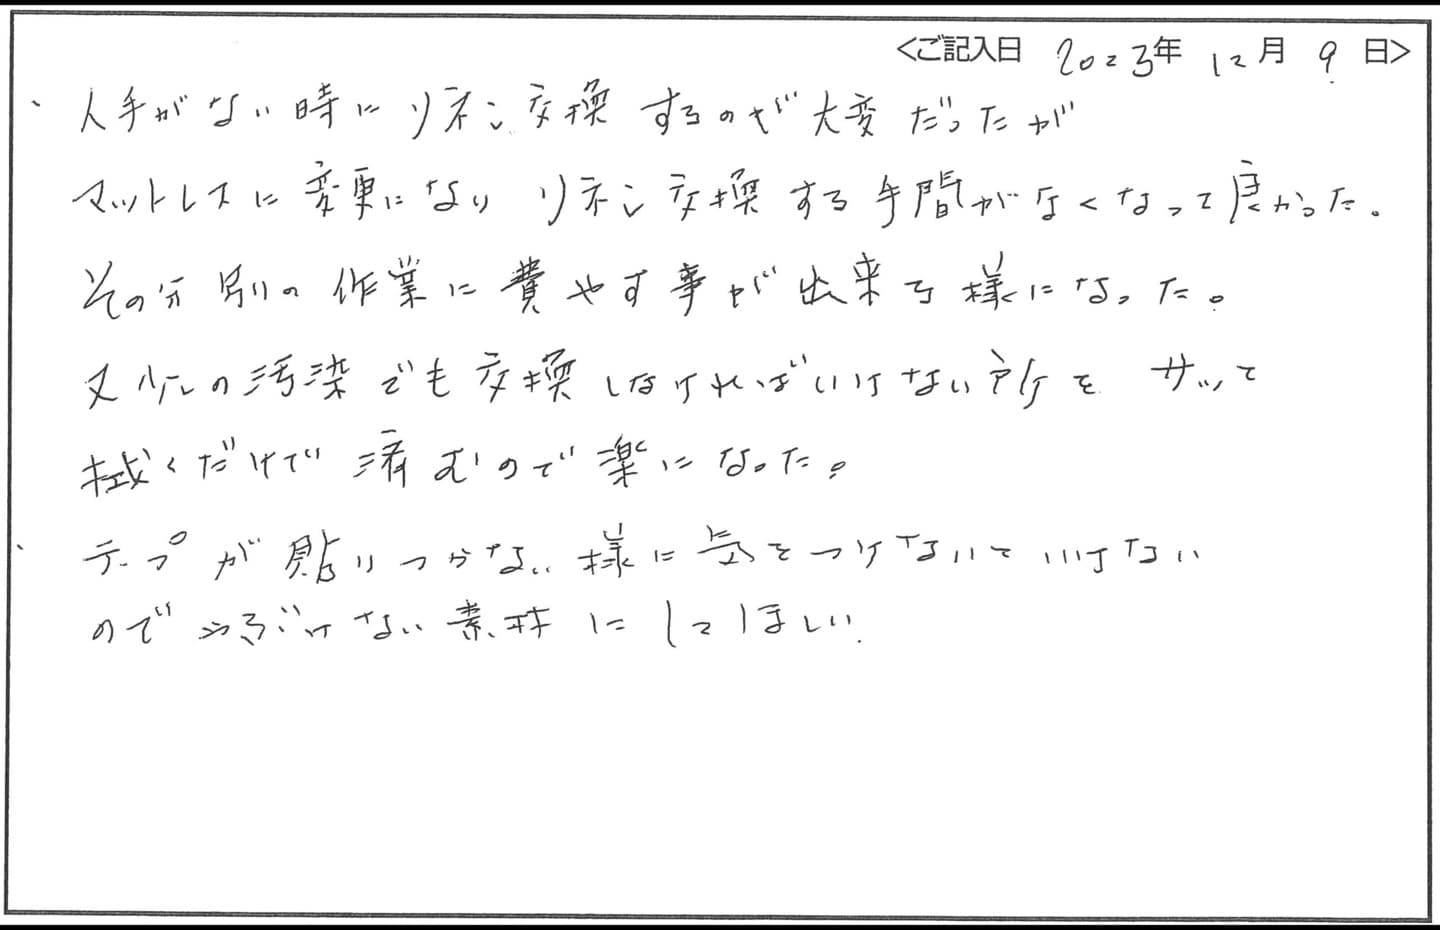 <ご記入日 2023年 12月 9日>
、人手がない時にリネン交換するのが大変だったが
マットレスに変更になり リネン交換する手間がなくなって良かった。
その分別の作業に費やす事が出来る様になった。
又少しの汚染でも交換しなければいけない所を サッと
拭くだけで済むので楽になった。
、テープが貼りつかない様に気をつけないといけない
ので 素材にしてほしい.